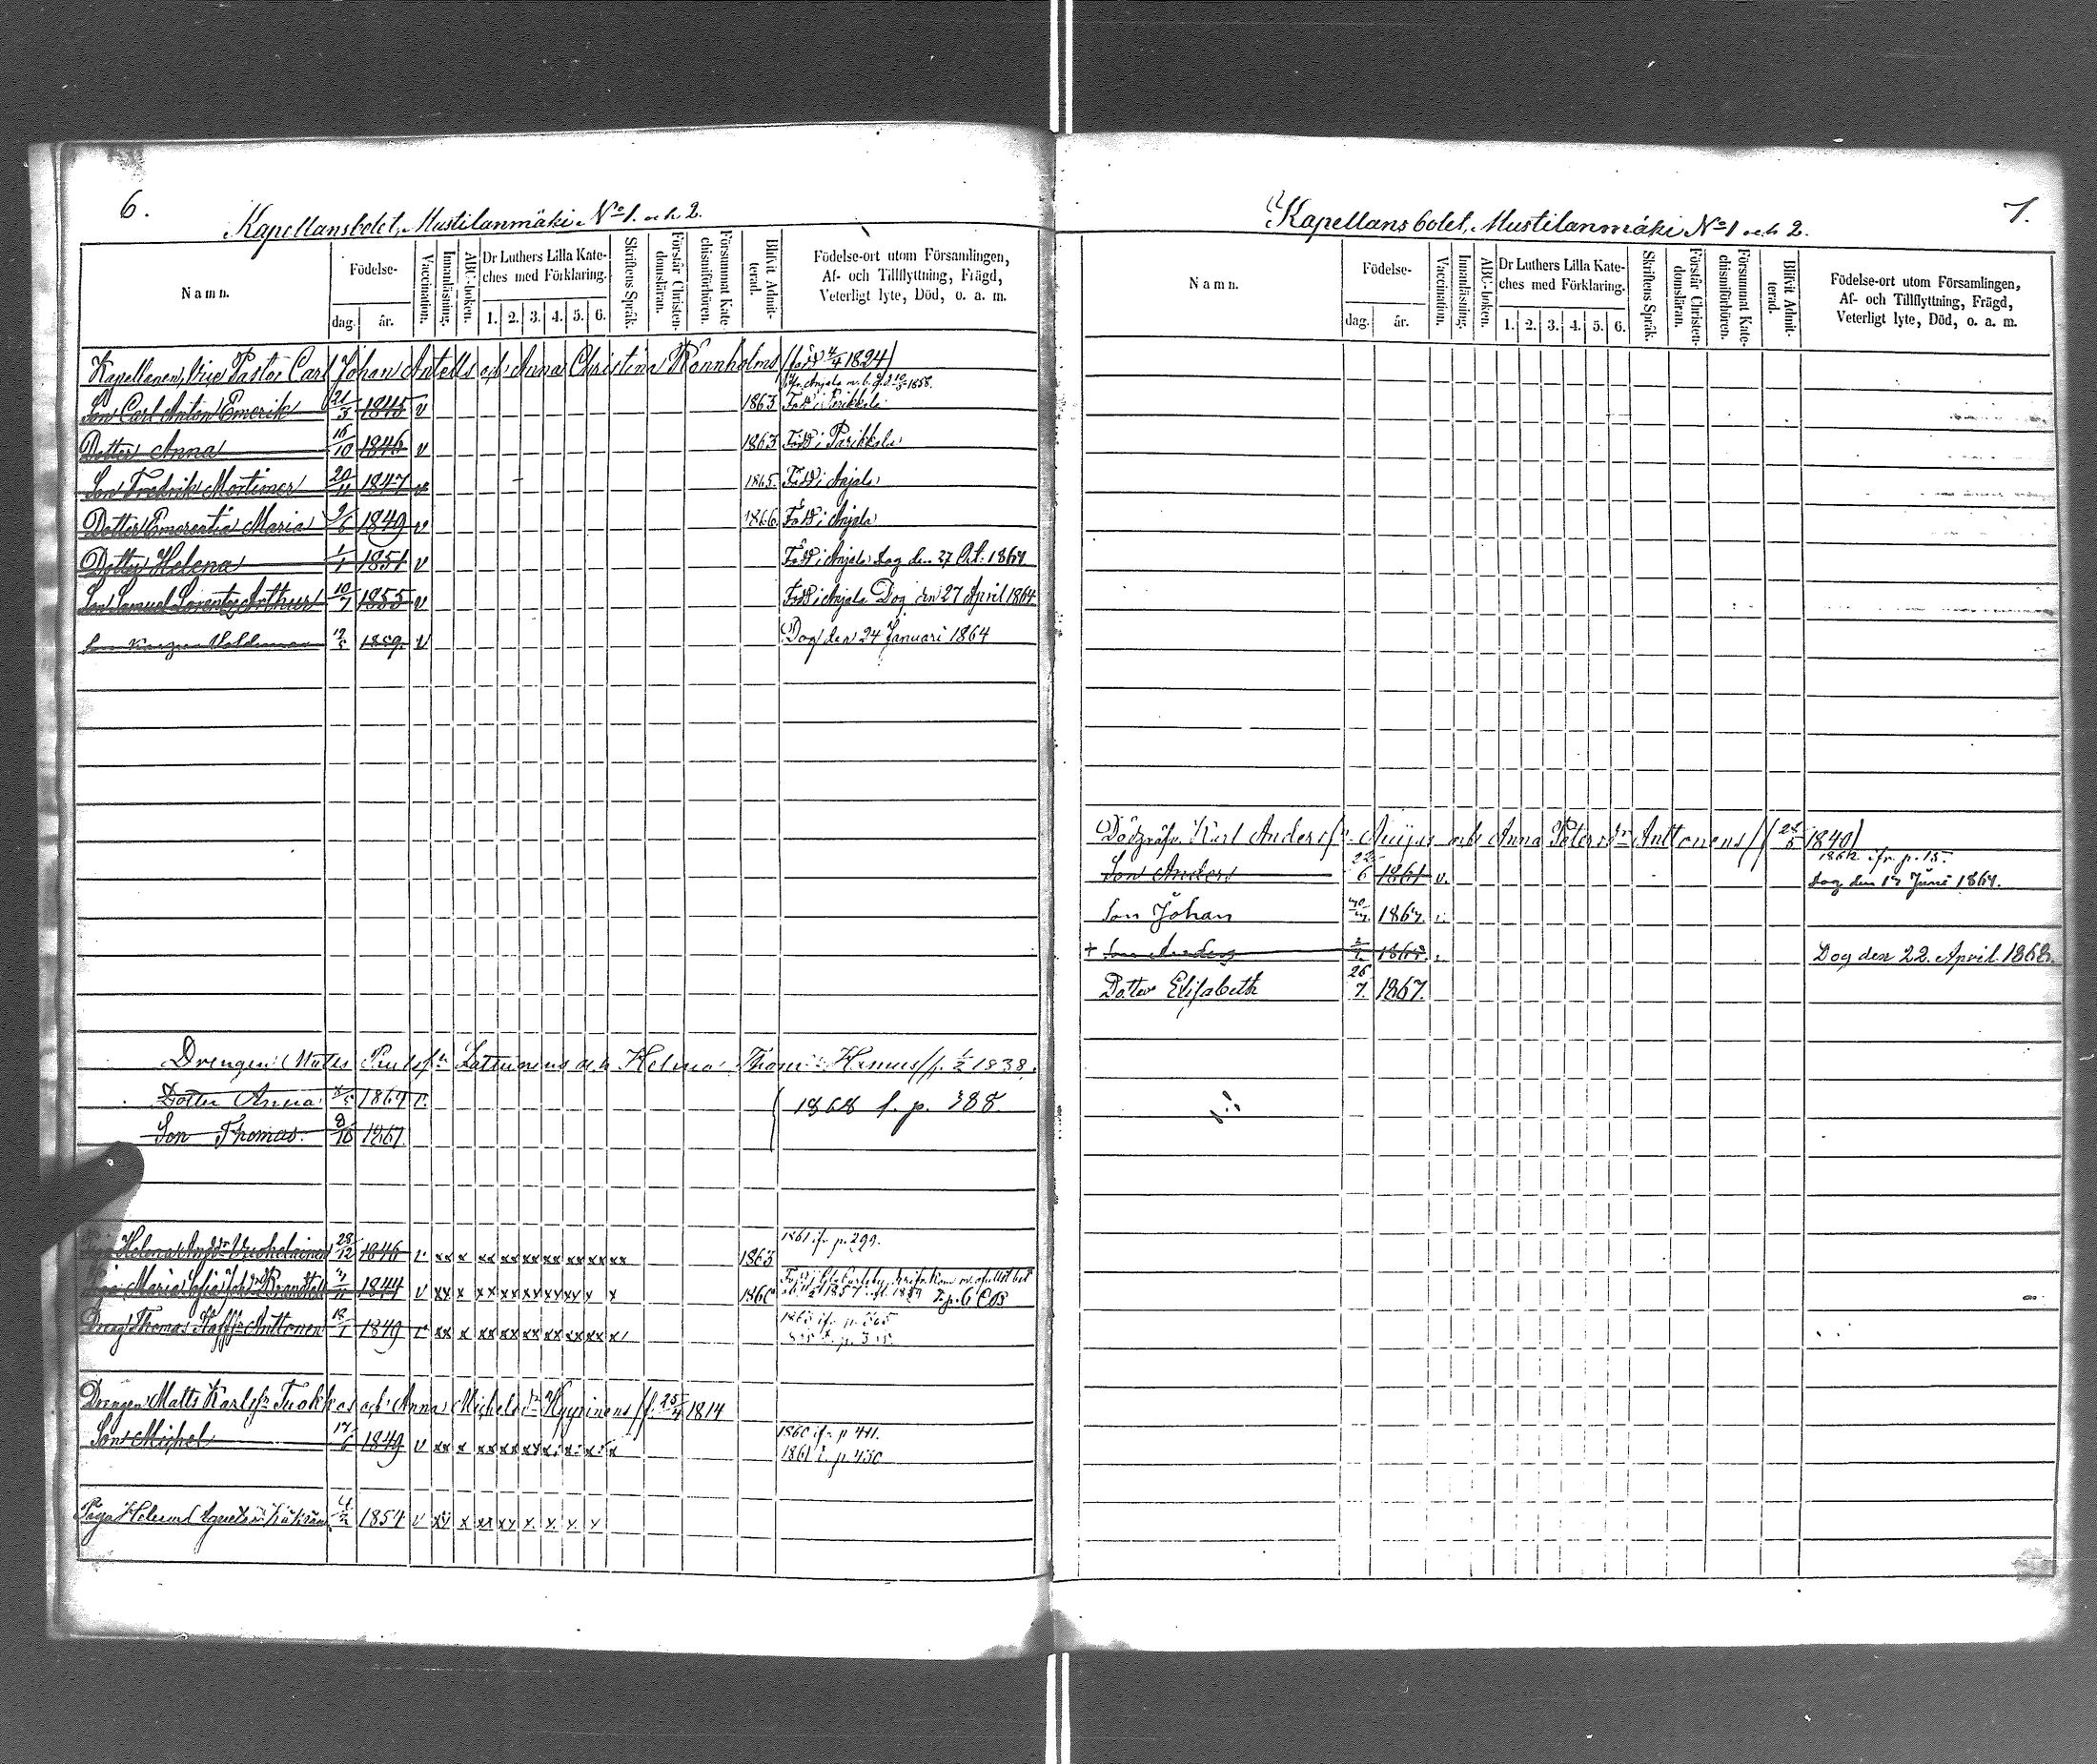 6.
Kapellansbolet, Mustilanmäki No 1. och 2.
Namn.
Födelse-
dag. år.
Vaccination.
Innanläsning.
ABC-boken.
Dr Luthers Lilla Kate-
ches med Förklaring.
1. 2. 3. 4. 5. 6.
Skriftens Språk.
Förstår Christen-
domsläran.
Försummat Kate-
chismiförhören.
Blifvit Admit-
terad.
Födelse-ort utom Församlingen,
Af- och Tillflyttning, Frägd,
Veterligt lyte, Död, o. a. m.
Kapellanen, Vice Pastor Carl Johan Antells och Anna Christina Rönnholms (född 4/4 1824)
Son Carl Anton Emerik 21/3 1845 v 1863 Född i Parikkala
Dotter Anna 16/10 1846 v 1863 Född i Parikkala
Son Fredrik Mortimer 20/11 1847 v 1865. Född i Anjala
Dotter Emerentia Maria 9/6 1849 v 1866 Född i Anjala
Dotter Helena 1/1 1851 v Född i Anjala Dog den 27 Oct. 1867
Son Samuel Lorentz Arthur 10/7 1855 v Född i Anjala Dog den 27 April 1864
Son Woldemar 1859. v Dog den 24 Januari 1864
Drengen Matts Paulsn Lattunens och Helena Thomædr Hemus (f. 1/2 1838.
Dotter Anna 1864 v.
1868 f. p. 388.
Son Thomas. 9/10 1867
Piga Helena Andrsdr Vuohelainen 28/12 1846 v xx x xx xx xx xx xx xx xx 1863 1861 ifr p. 299.
Piga Maria Sofia Johdr Brandtell 1844 v xx x xx xx xx xx xx x x 1860
Dreng Thomas Staffsn Anttonen 18/1 1849 v xx x xx xx xx xx xx xx x/
Drengen Matts Karlsn Tuokkos och Anna Michelsdr Hyyrinens (f. 25/4 1814
Son Michel 17/6 1849 v xx x xx xx xx x x x x 1860 ifr p 411.
1861 f. p. 430
Piga Helena 1854 v xx x xx xx x x x x
7.
Kapellansbolet, Mustilanmäki No 1 och 2.
Namn.
Födelse-
dag. år.
Vaccination.
Innanläsning.
ABC-boken.
Dr Luthers Lilla Kate-
ches med Förklaring.
1. 2. 3. 4. 5. 6.
Skriftens Språk.
Förstår Christen-
domsläran.
Försummat Kate-
chismiförhören.
Blifvit Admit-
terad.
Födelse-ort utom Församlingen,
Af- och Tillflyttning, Frägd,
Veterligt lyte, Död, o. a. m.
Dödgräfv. Karl Andersn Auijas och Anna Petersdr Anttonens (28/5 1840)
1862 ifr. p. 15.
Son Anders 22/6 1861 v. Dog den 17 Juni 1864.
Son Johan 1864. v.
+ Son Anders 1865. Dog den 22. April 1868.
Dotter Elisabeth 26/7. 1867.